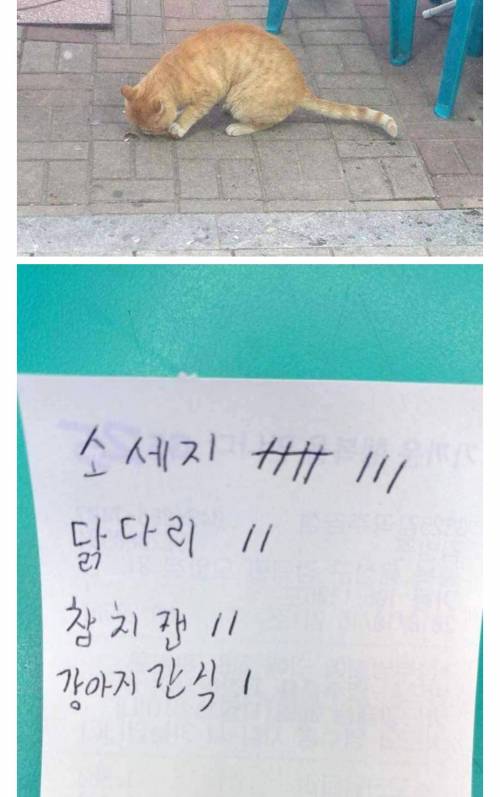 소세지 卌 ///
닭다리 //
참치캔 //
강아지 간식 /